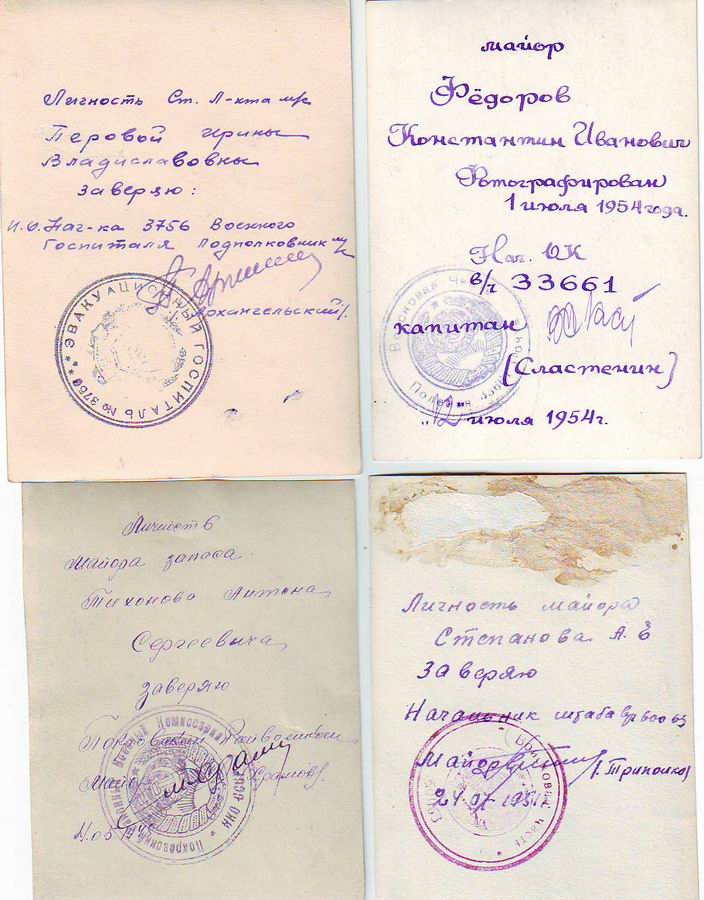 Личность Ст. Л-кта м/с
Перовой Ирины
Владиславовны
заверяю:
И.О. Нач-ка 3756 Военного
Госпиталя Подполковник м/с
Архангельский/.
ЭВАКУАЦИОННЫЙ ГОСПИТАЛЬ №
майор
Фёдоров
Константин Иванович
Фотографирован
1 июля 1954 года.
Нач. ОК
в/ч 33661
капитан
(Сластенин)
"12" июля 1954 г.
Войсковая часть
Личность
Майора запаса
Тихонова Антона
Сергеевича
заверяю
Покровский Райвоенком
Майор
Покровский Военный Комиссариат
Личность майора
Степанова А. Е
Заверяю
Начальник штаба
Майор
Войсковая часть